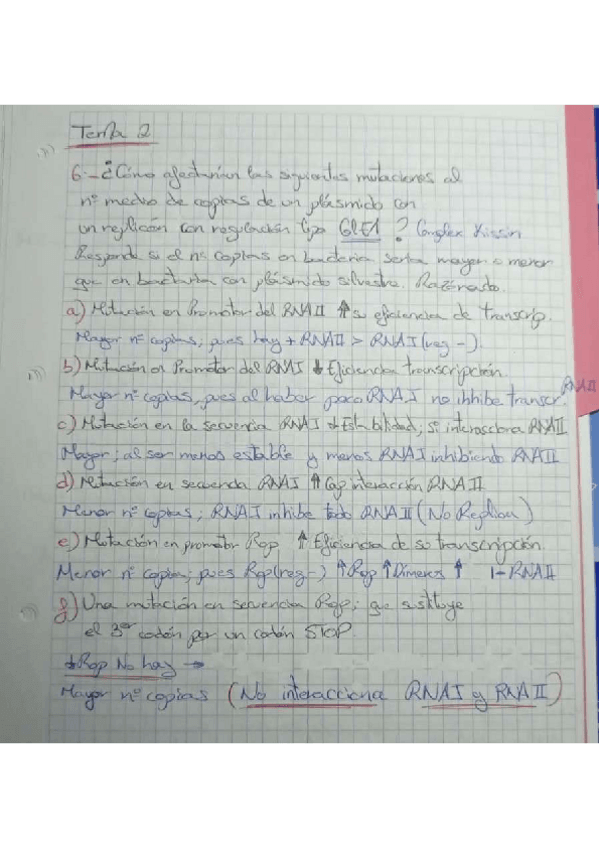 Tema 2
6.- ¿Cómo afectarían las siguientes mutaciones al
nº medio de copias de un plásmido con
un replicón con regulación tipo ColE1? Complex Kissin
Responde si el nº copias en bacteria sería mayor o menor
que en bacteria con plásmido silvestre. Razónado.
a) Mutación en Promotor del RNAII ↑ su eficiencia de transcrip.
Mayor nº copias, pues hay + RNAII > RNAI (reg -).
b) Mutación en Promotor del RNAI ↓ Eficiencia transcripción.
Mayor nº copias, pues al haber poco RNAI no inhibe transcr. RNAII
c) Mutación en la secuencia RNAI ↓ Estabilidad; si interacciona RNAII
Mayor; al ser menos estable y menos RNAI inhibiendo RNAII
d) Mutación en secuencia RNAI ↑ Cap interacción RNAII
Menor nº copias; RNAI inhibe todo RNAII (No Replica)
e) Mutación en promotor Rop ↑ Eficiencia de su transcripción.
Menor nº copias; pues Rop (reg -) ↑ Rop ↑ Dímeros ↑ 1-RNAII
g) Una mutación en secuencia Rop; que sustituye
el 3er codón por un codón STOP.
↓Rop No hay →
Mayor nº copias (No interacciona RNAI y RNAII)